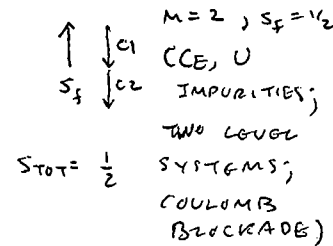 M = 2 , S_f = 1/2
C1
(CE, U
S_f
C2
IMPURITIES;
TWO LEVEL
S_TOT = 1/2 SYSTEMS;
COULOMB
BLOCKADE)